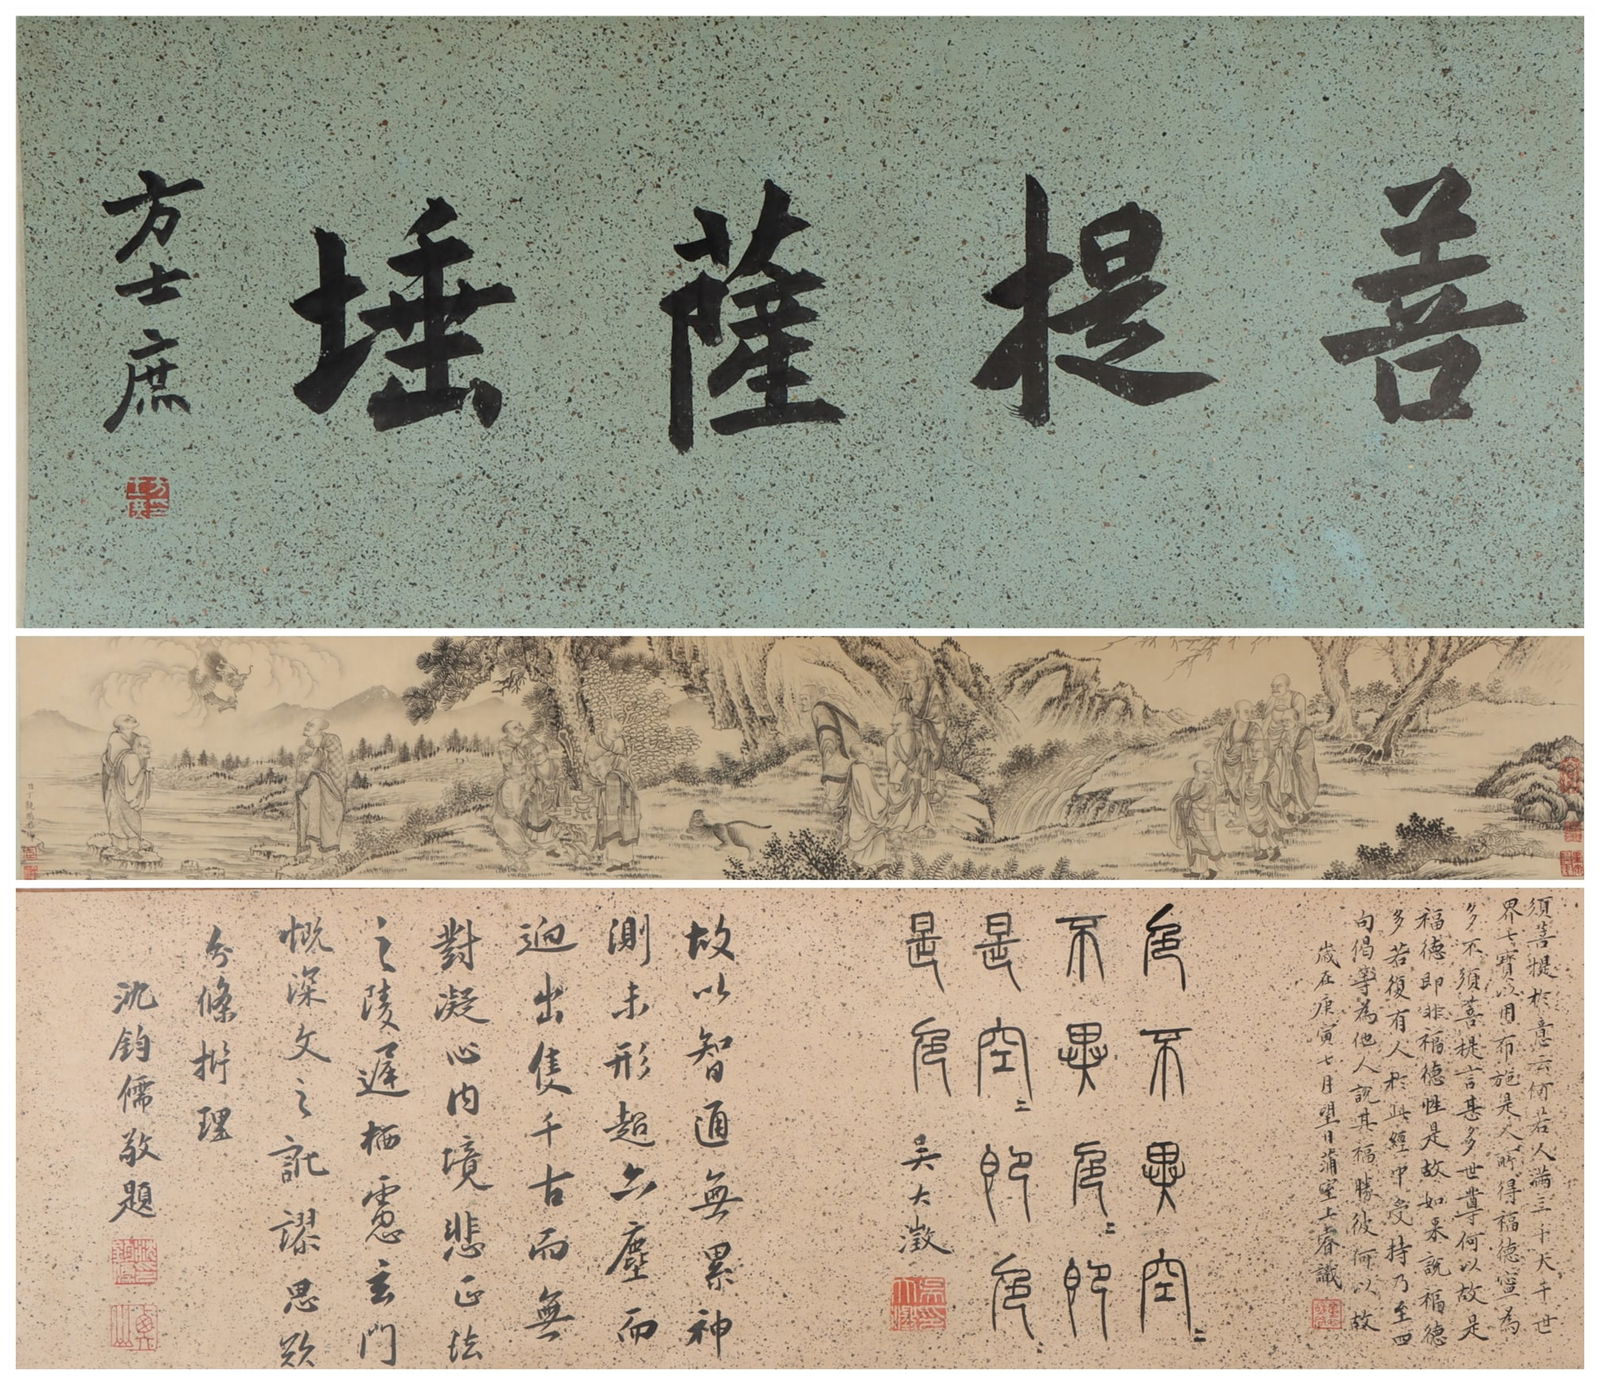 菩提薩埵
方士庶
須菩提於意云何若人滿三千大千世
界七寶以用布施是人所得福德寧為
多不須菩提言甚多世尊何以故是
福德即非福德性是故如來說福德
多若復有人於此經中受持乃至四
句偈等為他人說其福勝彼何以故
歲在庚寅七月望日蒲室上睿識
色不異空〻
不異色〻即
是空〻即色〻
是色
吳大澂
故以智通無累神
測未形超六塵而
迥出隻千古而無
對凝心內境悲正法
之陵遲栖慮玄門
慨深文之訛謬思欲
分條析理
沈鈞儒敬題